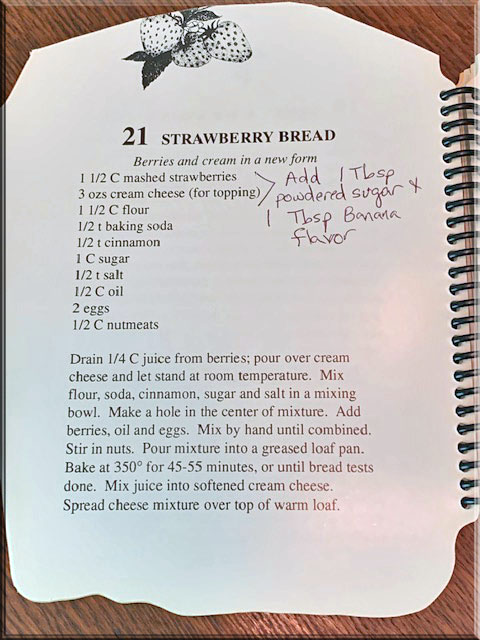 21 STRAWBERRY BREAD
Berries and cream in a new form
1 1/2 C mashed strawberries
3 ozs cream cheese (for topping)
1 1/2 C flour
1/2 t baking soda
1/2 t cinnamon
1 C sugar
1/2 t salt
1/2 C oil
2 eggs
1/2 C nutmeats
Add 1 Tbsp
powdered sugar +
1 Tbsp Banana
flavor
Drain 1/4 C juice from berries; pour over cream
cheese and let stand at room temperature. Mix
flour, soda, cinnamon, sugar and salt in a mixing
bowl. Make a hole in the center of mixture. Add
berries, oil and eggs. Mix by hand until combined.
Stir in nuts. Pour mixture into a greased loaf pan.
Bake at 350° for 45-55 minutes, or until bread tests
done. Mix juice into softened cream cheese.
Spread cheese mixture over top of warm loaf.